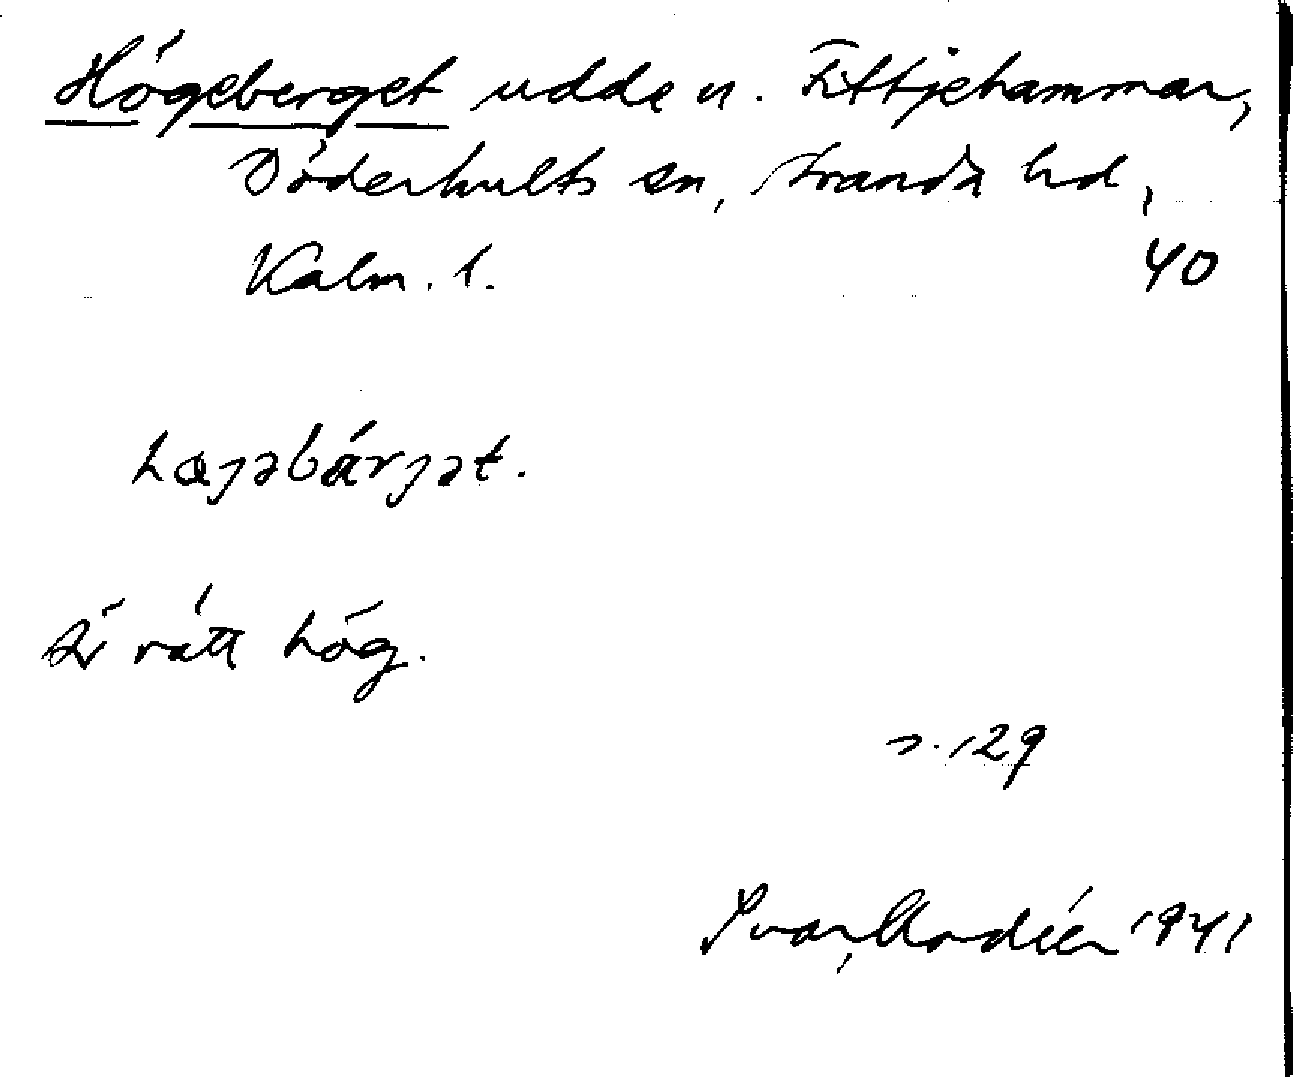 Högeberget udde n. Ettjehammar,
Döderhults sn, Stranda hd,
Kalm. l. 40
højəbárjət.
Är rätt hög.
s. 129
Ivar Modéer 1941